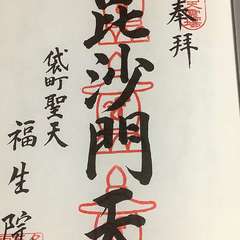 奉拝
毘沙門天
袋町聖天
福生院